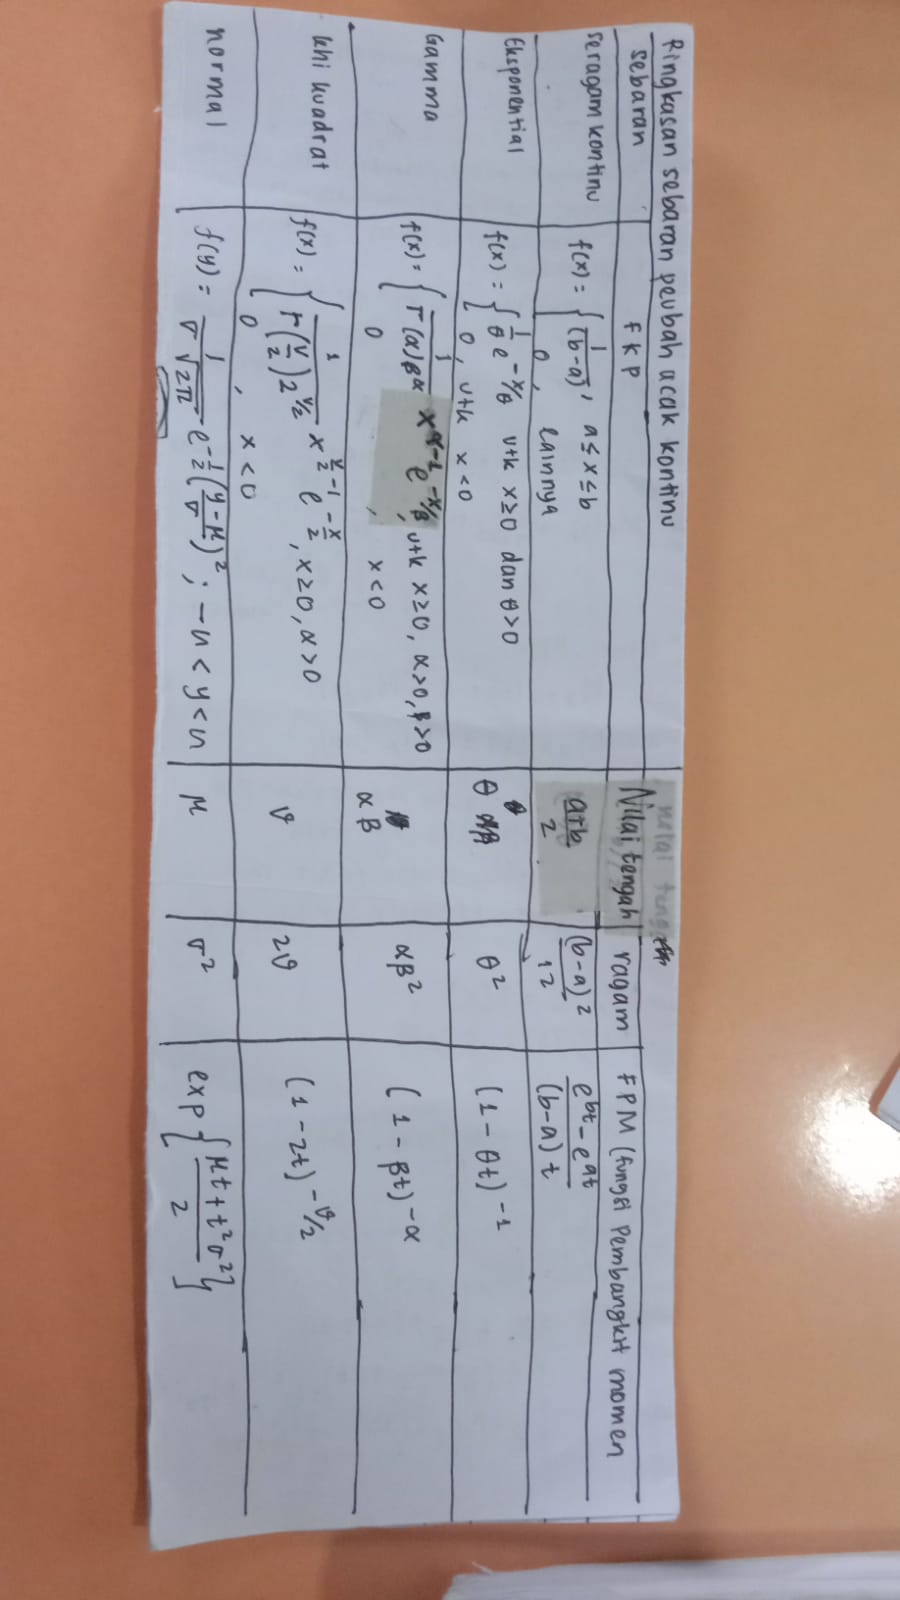 Ringkasan sebaran peubah acak kontinu
nilai tenga
sebaran FKP Nilai tengah ragam FPM (fungsi Pembangkit momen
seragam kontinu f(x) = { 1/(b-a), a ≤ x ≤ b a+b/2 (b-a)²/12 e^bt - e^at/(b-a)t
0, lainnya
Eksponential f(x) = { 1/θ e^-x/θ utk x≥0 dan θ>0 θ θ² (1 - θt)^-1
0, utk x<0
Gamma f(x) = { 1/Γ(α)β^α x^α-1 e^-x/β, utk x≥0, α>0, β>0 αβ αβ² (1 - βt)^-α
0, x<0
khi kuadrat f(x) = { 1/Γ(v/2)2^v/2 x^v/2-1 e^-x/2, x≥0, α>0 ϑ 2ϑ (1-2t)^-ϑ/2
0, x<0
normal f(y) = 1/σ√2π e^-1/2(y-μ/σ)²; -n<y<n μ σ² exp{μt+t²σ²/2}